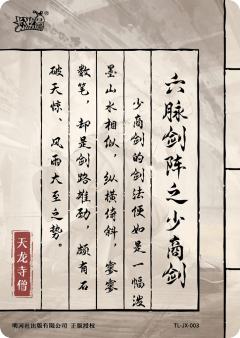 六脉剑阵之少商剑
少商剑的剑法便如是一幅泼
墨山水相似，纵横倚斜，寥寥
数笔，却是剑路雄劲，颇有石
破天惊、风雨大至之势。
天龙寺僧
明河社出版有限公司 正版授权
TL-JX-003